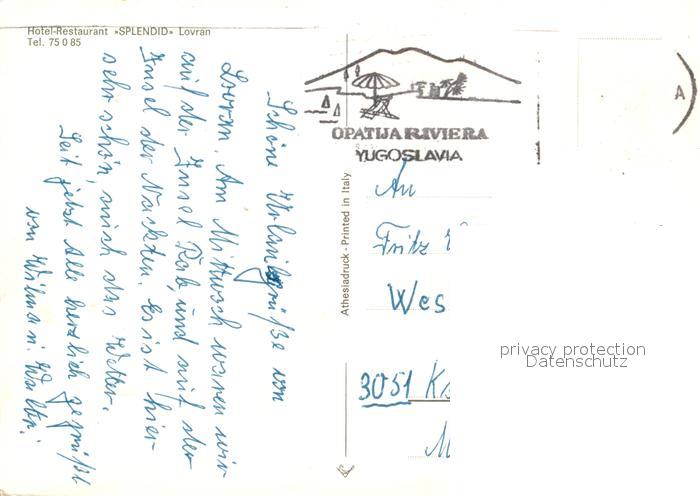 Hotel-Restaurant »SPLENDID« Lovran
Tel. 75 0 85
Schöne Urlaubsgrüße von
Lovran. Am Mittwoch waren wir
auf der Insel Rab, und auf der
Insel der Nackten. Es ist hier
sehr schön, auch das Wetter.
Seit jetzt Alle herzlich gegrüßt
von Wilma u. Walter.
OPATIJA RIVIERA
YUGOSLAVIA
A
Athesiadruck - Printed in Italy
An
Fritz
Wes
3051
privacy protection
Datenschutz